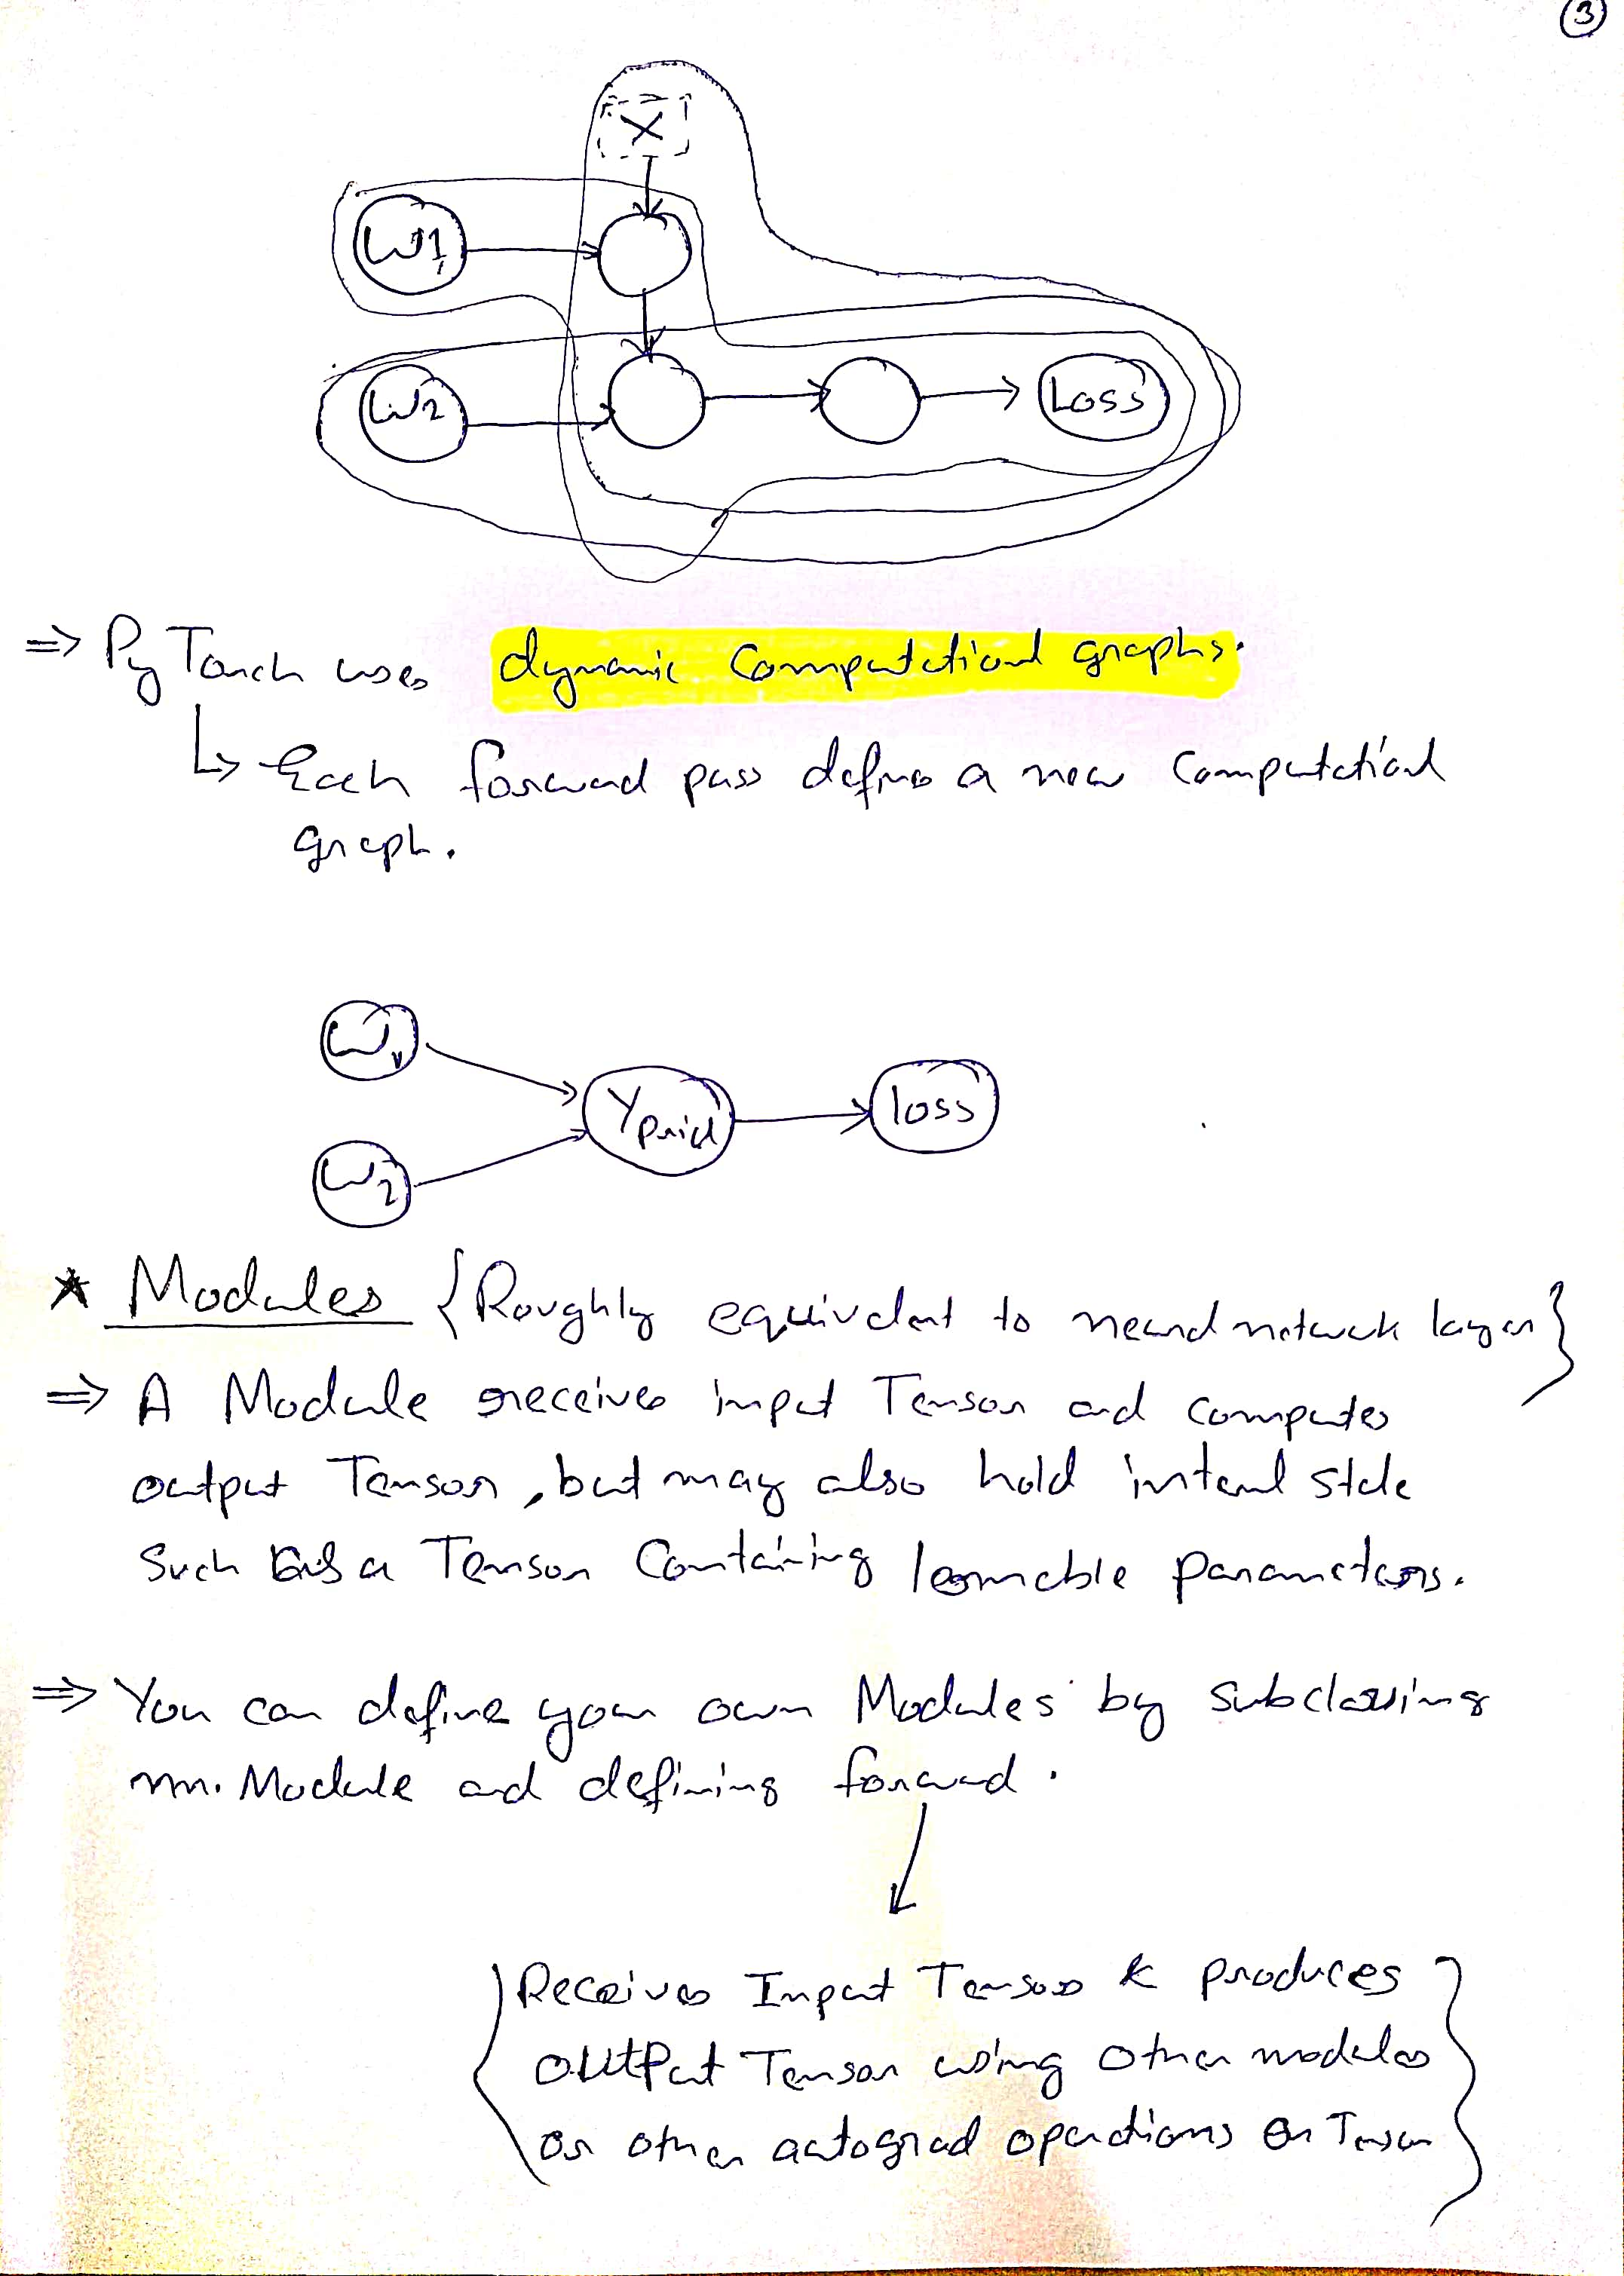 3
X
W1
W2
Loss
⇒ PyTorch uses dynamic Computational graphs.
↳ Each forward pass defines a new Computational
graph.
W1
Ypred
loss
W2
* Modules {Roughly equivalent to neural network layer}
⇒ A Module receives input Tensor and computes
output Tensor, but may also hold internal state
Such as a Tensor Containing learnable parameters.
⇒ You can define your own Modules by subclassing
nn.Module and defining forward.
{Receives Input Tensors & produces
output Tensor using other modules
or other autograd operations on Tensor}